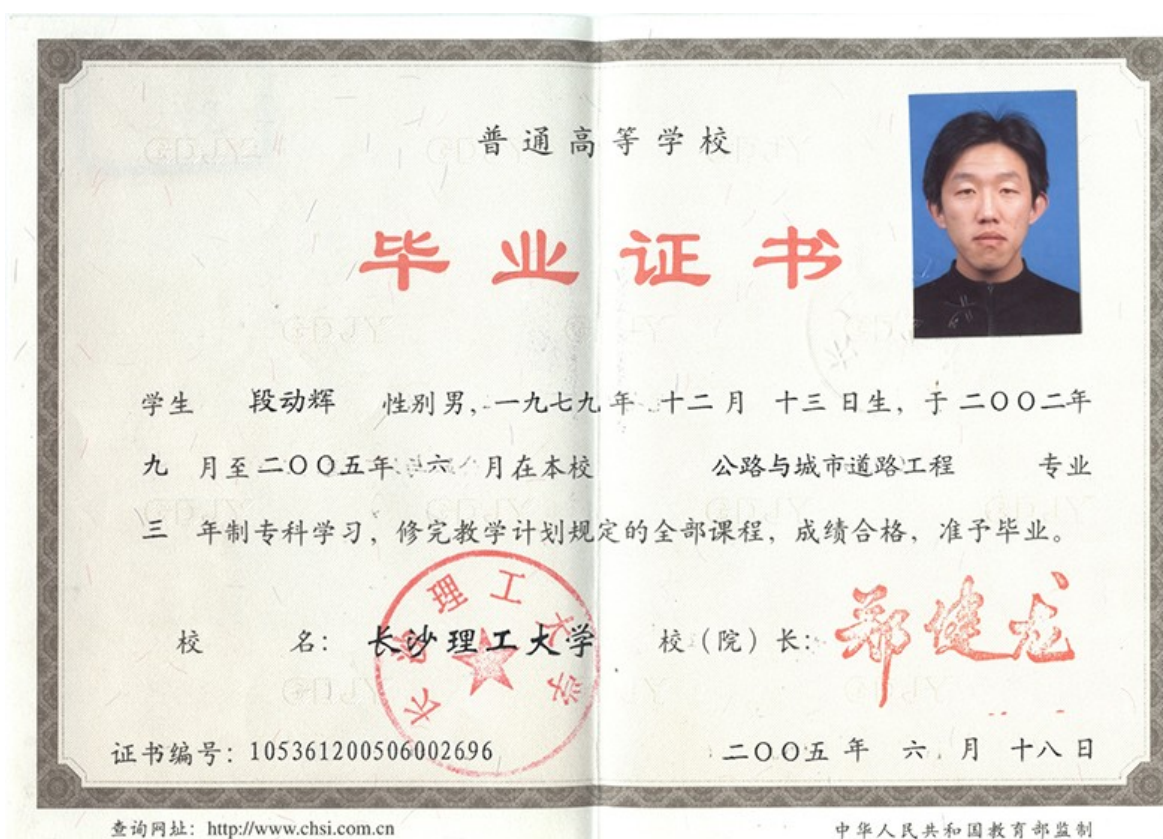 普通高等学校
毕业证书
学生 段动辉 性别男,一九七九年 十二月 十三日生,于二〇〇二年
九 月至二〇〇五年 六 月在本校 公路与城市道路工程 专业
三 年制专科学习,修完教学计划规定的全部课程,成绩合格,准予毕业。
校 名:长沙理工大学 校(院)长:郑健龙
长沙理工大学
证书编号:105361200506002696 二〇〇五年 六月 十八日
查询网址:http://www.chsi.com.cn 中华人民共和国教育部监制